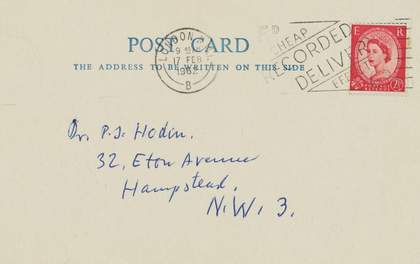 POST CARD
THE ADDRESS TO BE WRITTEN ON THIS SIDE
LONDON
17 FEB
196
B
CHEAP
RECORDED
DELIVER
E R
Dr. P.J. Hodin.
32, Eton Avenue
Hampstead.
N.W. 3.